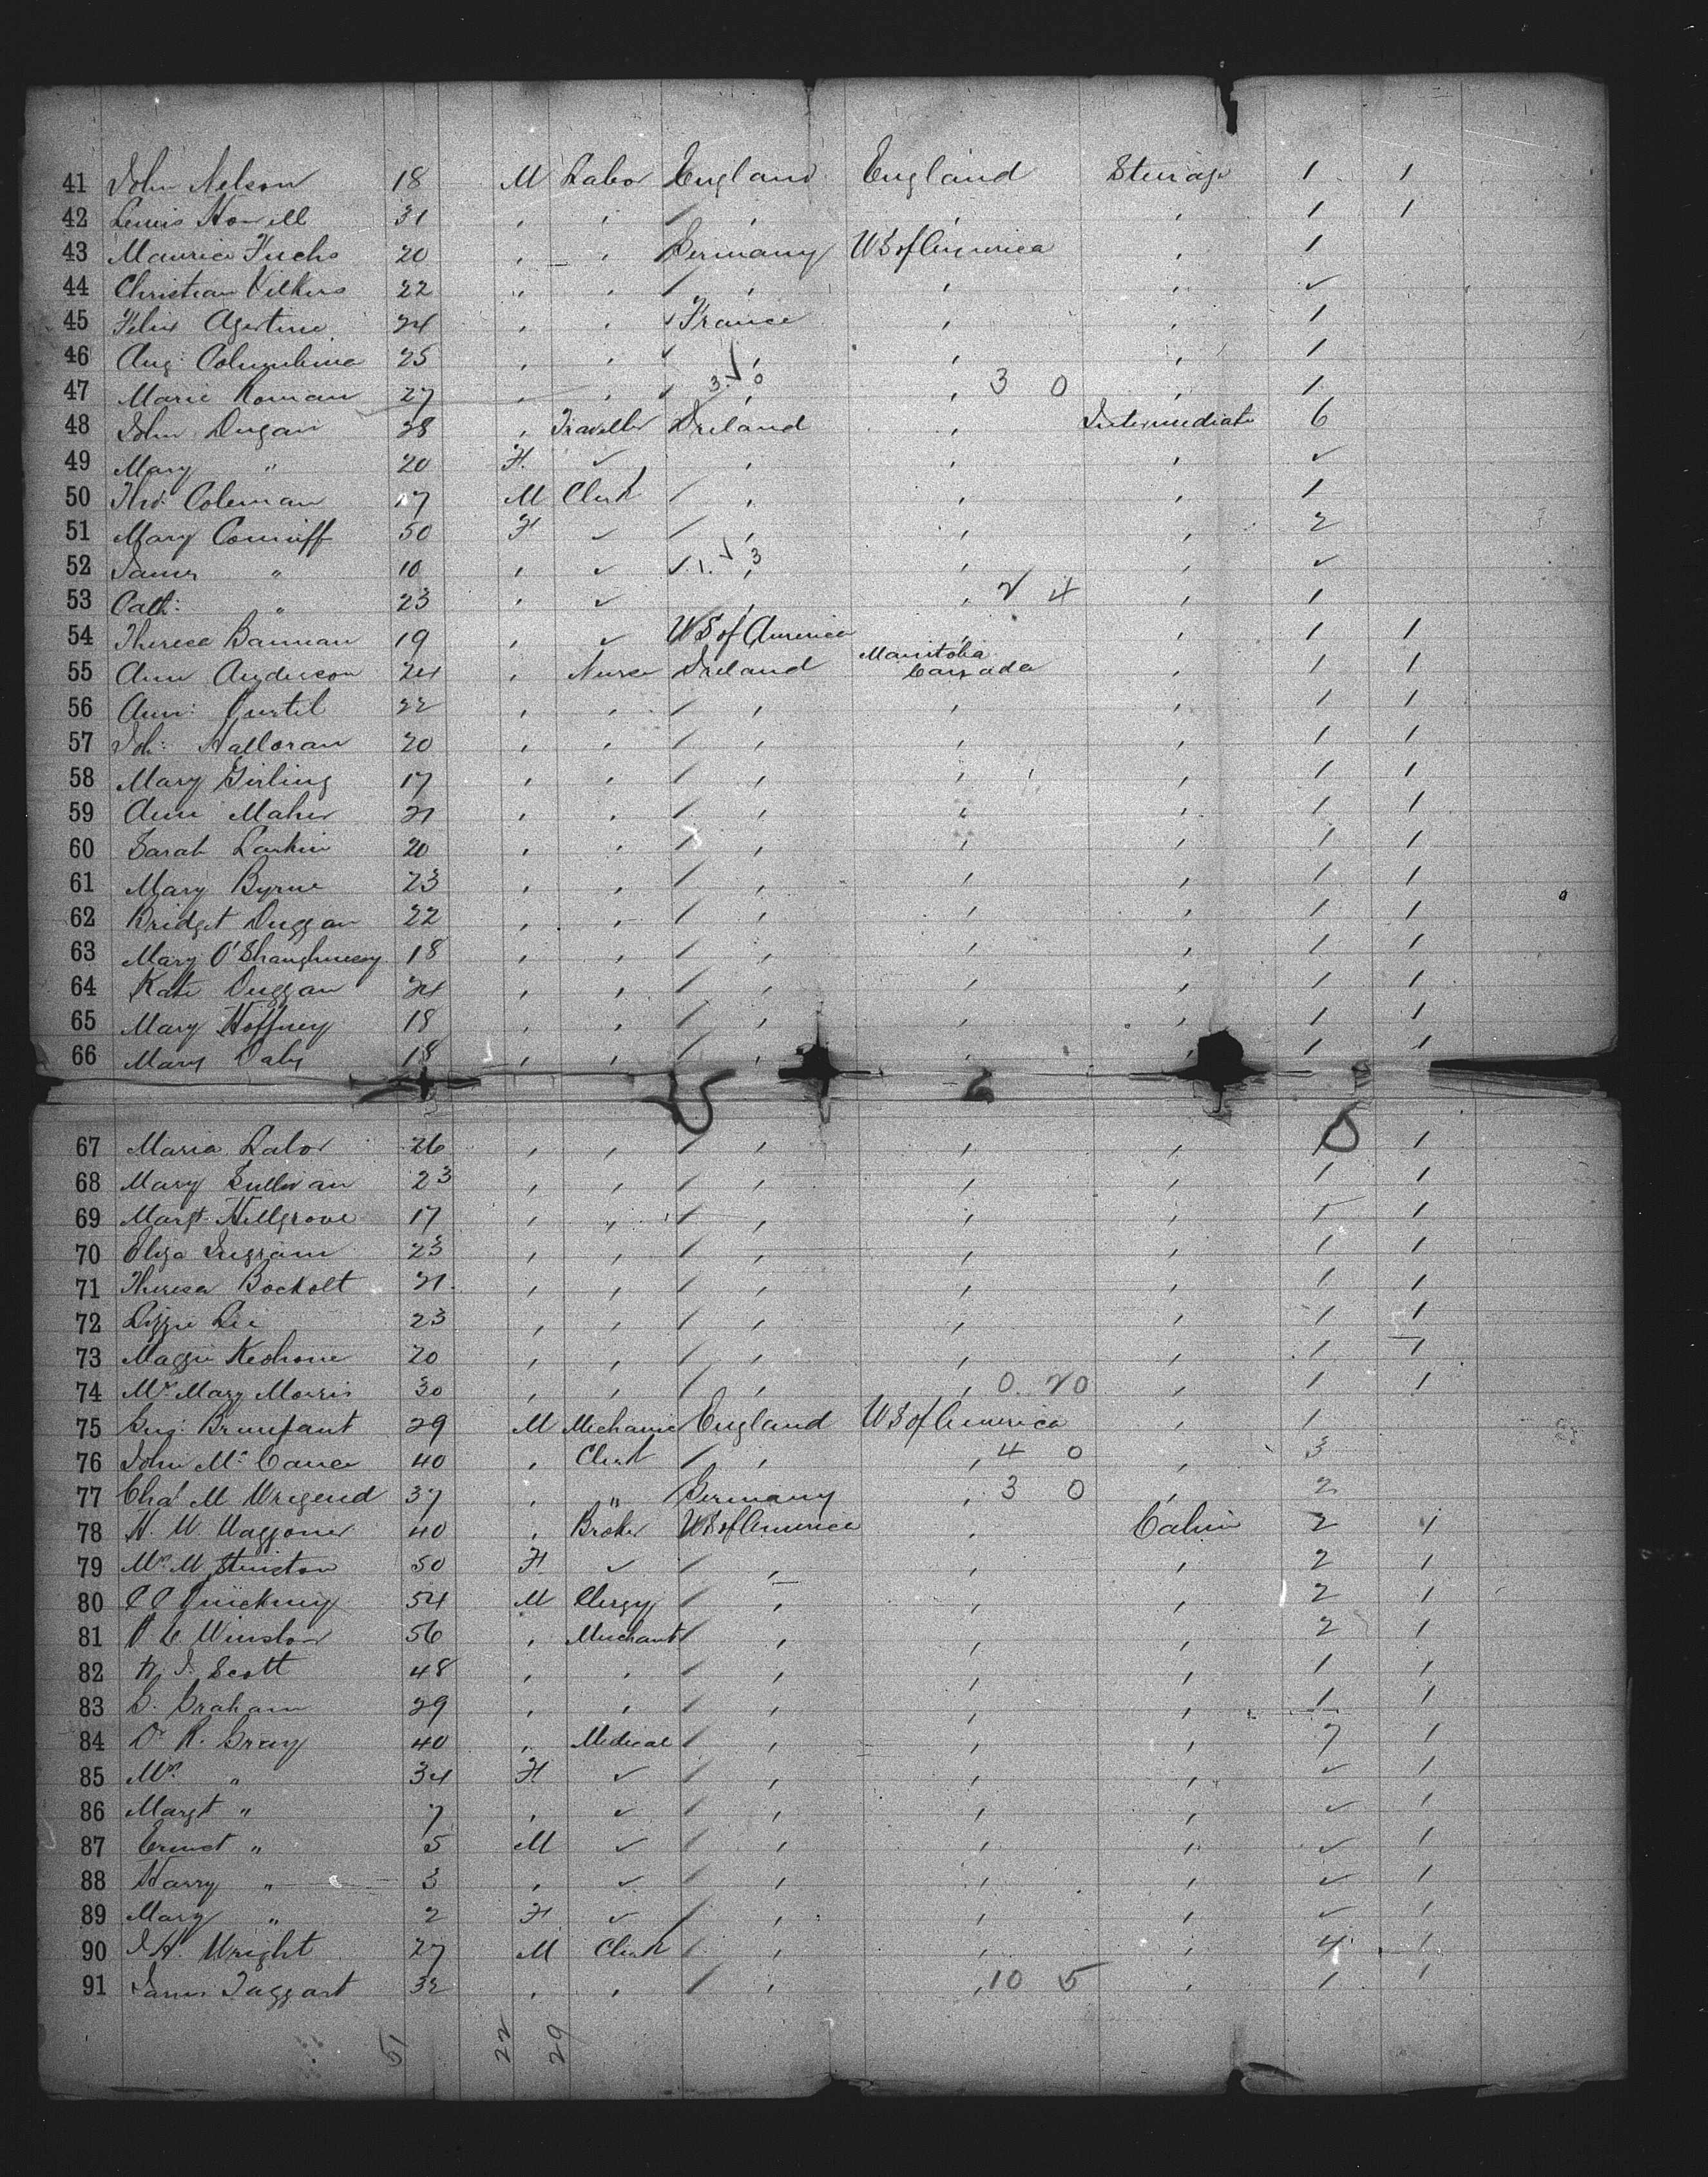 41 John Nelson 18 M Labor England England Steerage 1 1
42 Lewis Howell 31 , , / , , , 1 1
43 Maurice Fuchs 20 , , Germany US of America , 1
44 Christian Vilkins 22 , , / , , , ✓
45 Felix 24 , , France , , 1
46 Aug: Columbine 25 , , ✓ , , , 1
3 0
47 Marie Roman 27 , , / , , 3 0 , 1
48 John Dugan 28 , Traveller Ireland , Intermediate 6
49 Mary " 20 F. ✓ , , , ✓
50 Tho: Coleman 17 M Clerk / , , , 1
51 Mary Conniff 50 F ✓ / , , , 2
52 James " 10 , ✓ 1 3 , , ✓
53 Cath: " 23 , ✓ , 2 4 , 1
54 Theresa Bannan 19 , ✓ US of America , , 1 1
55 Ann Anderson 24 , Nurse Ireland Manitoba Canada , 1 1
56 Ann: 22 , , / , , , 1 1
57 Joh: Halloran 20 , , / , , , 1 1
58 Mary Girling 17 , , / , , , 1 1
59 Ann Maher 21 , , / , , , 1 1
60 Sarah Larkin 20 , , / , , , 1 1
61 Mary Byrne 23 , , / , , , 1 1
62 Bridget Duggan 22 , , / , , , 1 1
63 Mary O'Shaughnessy 18 , , / , , , 1 1
64 Kate Duggan 24 , , / , , , 1 1
65 Mary Hoffney 18 , , / , , , 1 1
66 Mary Daly 18 , , / , , , 1 1
5 6 8
67 Maria Labor 26 , , / , , , 1 1
68 Mary Sullivan 23 , , / , , , 1 1
69 Margt. Hillgrove 17 , , / , , , 1 1
70 Eliza Ingram 23 , , / , , , 1 1
71 Theresa Bockolt 21 , , / , , , 1 1
72 Lizzie Lee 23 , , / , , , 1 1
73 Maggie Keohone 20 , , / , , , 1 1
74 Mrs Mary Morris 30 , , / , , 0 20 , 1 1
75 29 M Mechanic England US of America , 1
76 John Mc Cance 40 , Clerk / , , 4 0 , 3
77 Chas M Wrigend 37 , " Germany , 3 0 , 2
78 H. W. Waggoner 40 , Broker US of America , Cabin 2 1
79 Mrs M Stinston 50 F. ✓ / , , , 2 1
80 C C 54 M Clergy / , , , 2 1
81 Winslow 56 , Merchant / , , , 2 1
82 Scott 48 , , / , , , 1 1
83 G. Graham 29 , , / , , , 1 1
84 Dr R. Gray 40 , Medical / , , , 7 1
85 Mrs " 34 F ✓ / , , , ✓ 1
86 Margt " 7 , ✓ / , , , ✓ 1
87 Ernest " 5 M ✓ / , , , ✓ 1
88 Harry " 3 , ✓ / , , , ✓ 1
89 Mary " 2 F ✓ / , , , ✓ 1
90 J H. Wright 27 M Clerk / , , , 4 1
91 James Taggart 32 , , / , , 10 5 , 1 1
51 22 29